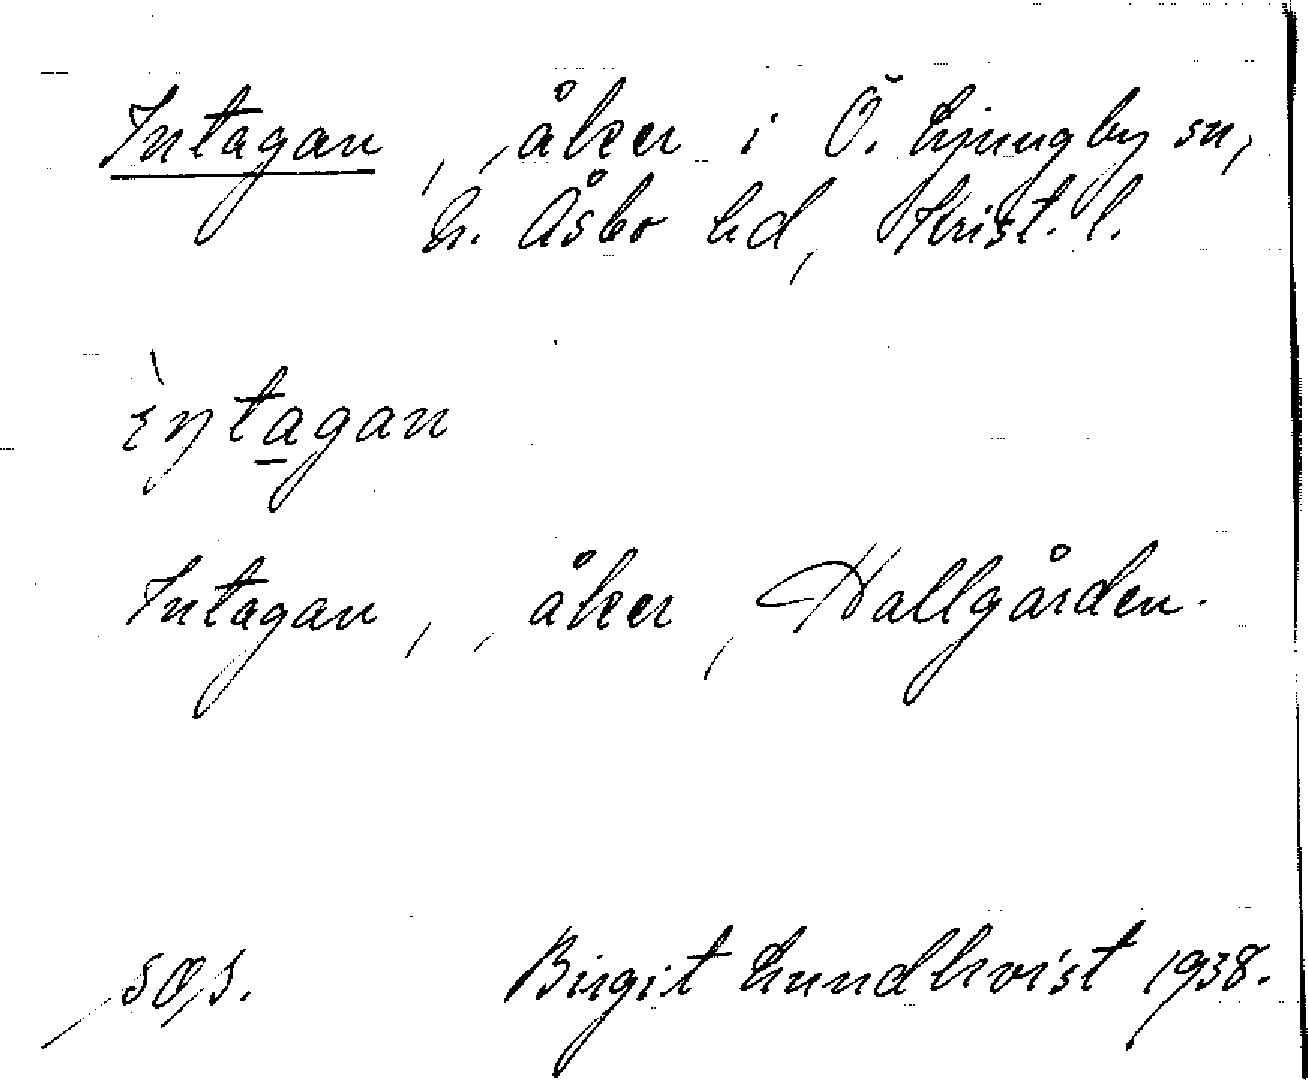 Intagan, åker i Ö. Ljungby sn,
N. Åsbo hd, Krist. l.
ὲŋtagan
Intagan, åker, Hallgården.
Birgit Lundkvist 1938.